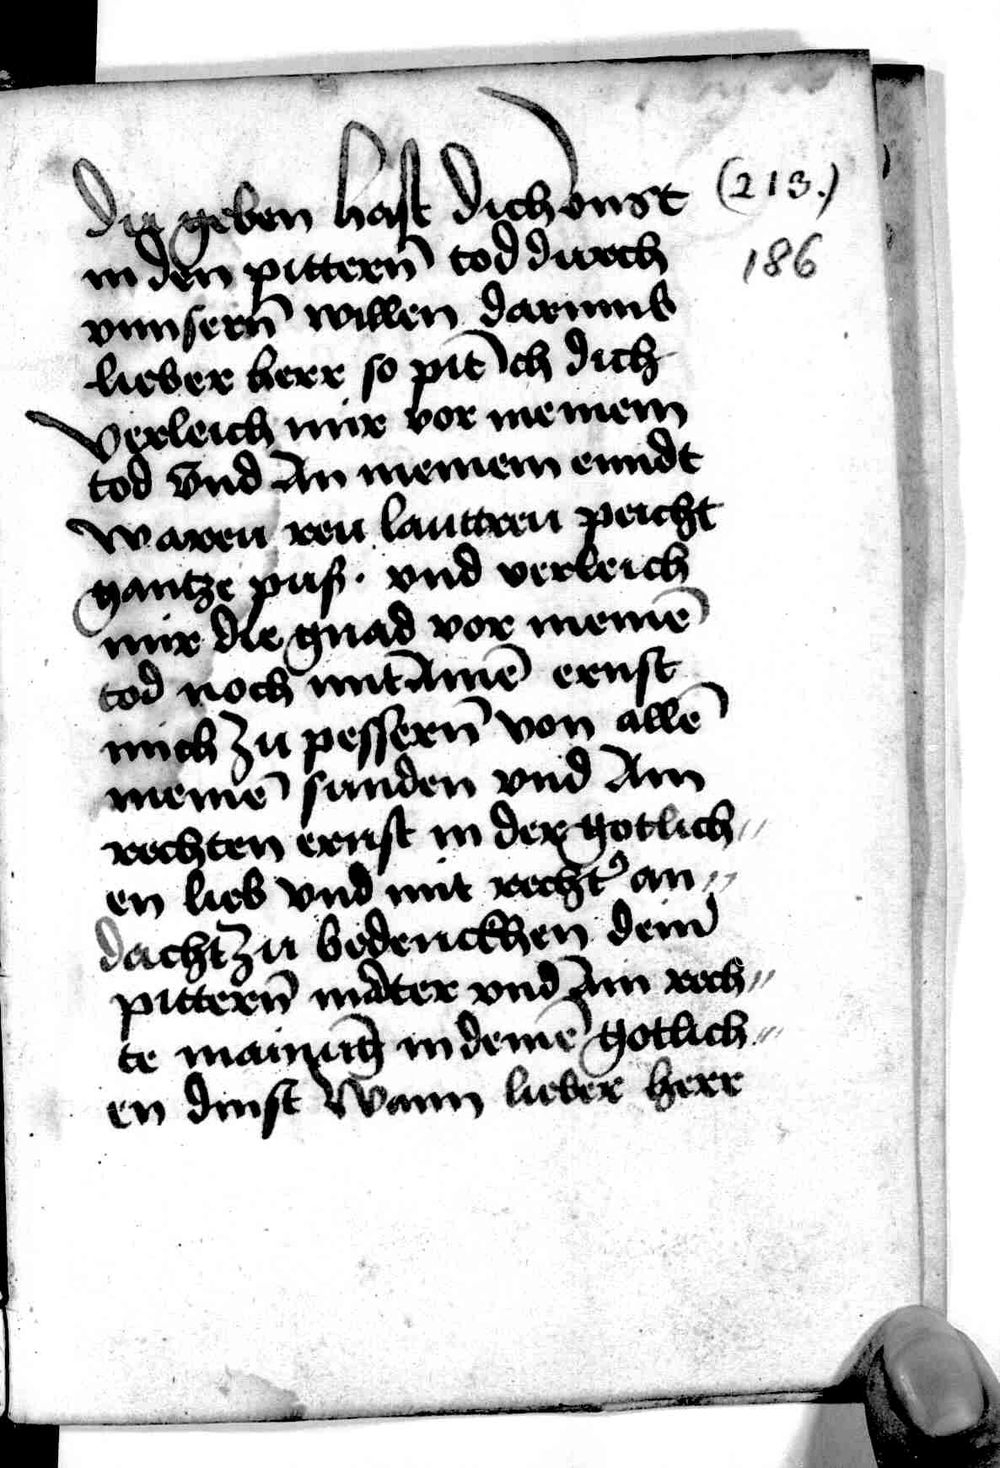 Du geben hast dich vnst (213.)
in den pittern̄ tod durch 186
vnnsern̄ willen darumb
lieber herr so pit ich dich
verleich mir vor meinem
tod vnd An meinem enndt
waren reu lauttren peicht
gantze puß · vnd verleich
mir die gnad vor meinē
tod noch mit Ainē ernst
mich zu pessern̄ von allē
meinē sunden vnd Ain
rechten ernst in der gotlich〃
en lieb vnd mit recht' an〃
dacht zu bedenckhen dein̄
pittern̄ mater vnd Ain rech〃
te mainūg in deinē gotlich〃
en dinst Wann lieber herr